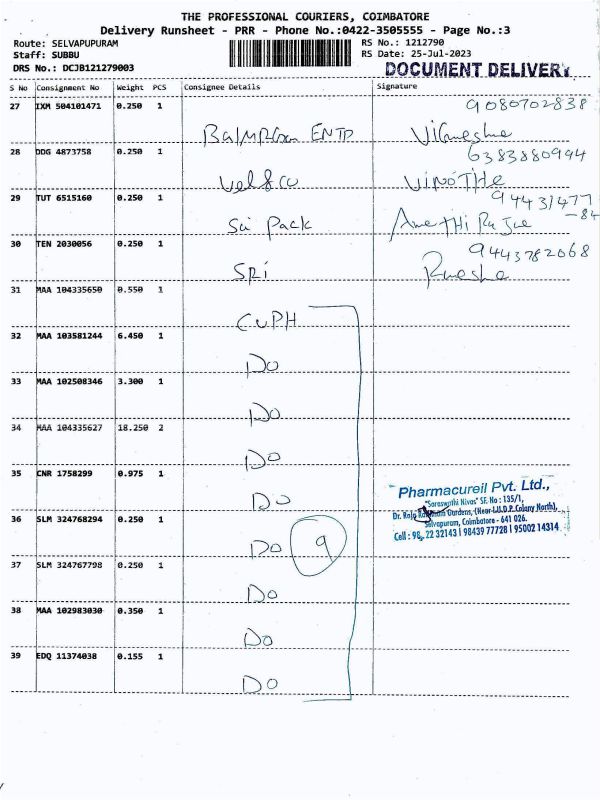 THE PROFESSIONAL COURIERS, COIMBATORE
Delivery Runsheet - PRR - Phone No.:0422-3505555 - Page No.:3
Route: SELVAPUPURAM
Staff: SUBBU
DRS No.: DCJB121279003
RS No.: 1212790
RS Date: 25-Jul-2023
DOCUMENT DELIVERY
S No Consignment No Weight PCS Consignee Details Signature
27 IXM 504101471 0.250 1 ENTP 9080702838
28 DDG 4873758 0.250 1 Vel & Co 6383880994
VINOTHE
29 TUT 6515160 0.250 1 Sri Pack 944431477
-84
30 TEN 2030056 0.250 1 SRI 9443782068
31 MAA 104335650 0.550 1 CUPH
32 MAA 103581244 6.450 1 Do
33 MAA 102508346 3.300 1 Do
34 MAA 104335627 18.250 2 Do
35 CNR 1758299 0.975 1 Do
36 SLM 324768294 0.250 1 Do 9
37 SLM 324767798 0.250 1 Do
38 MAA 102983030 0.350 1 Do
39 EDQ 11374038 0.155 1 Do
Pharmacureil Pvt. Ltd.,
"Saraswathi Nivas" SF. No : 135/1,
Dr. Raja Gardens, (Near I.U.D.P. Colony North),
Selvapuram, Coimbatore - 641 026.
Cell : 98 22 32143 | 98439 77728 | 95002 14314